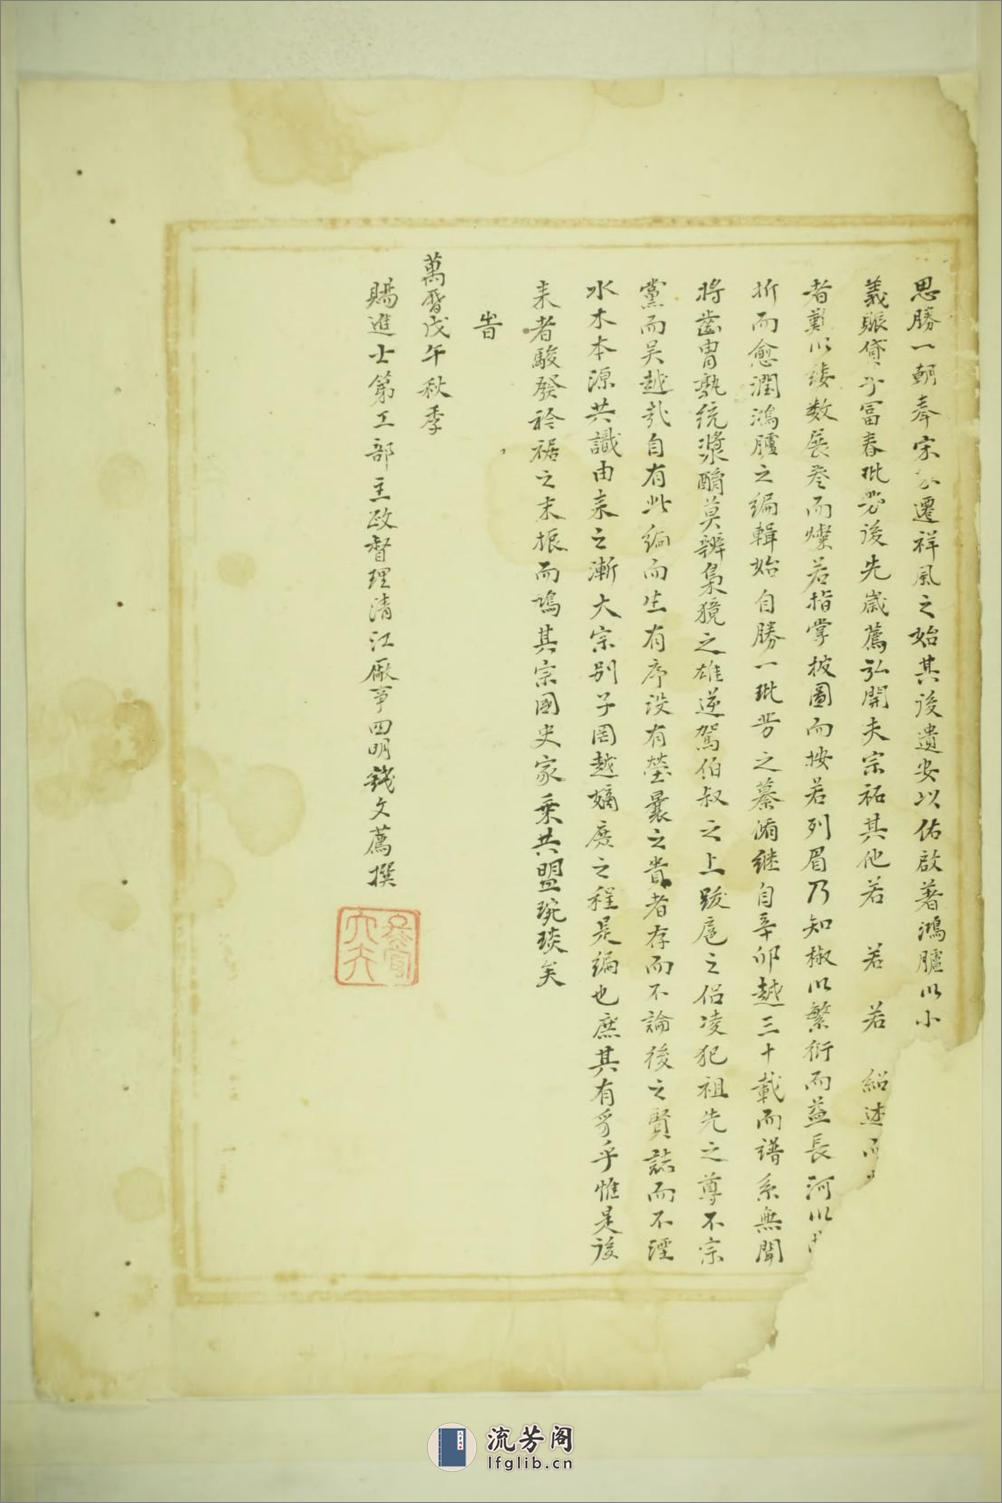 思勝一朝奉宋遷祥風之始其後遺安以佑啟著鴻臚以小
義賑貸于冨春毗勞後先嵗薦弘開夫宗祏其他若若若紹述
者數以縷数展巻而燦若指掌披圖而按若列眉乃知椒以繁衍而益長河以
折而愈潤鴻臚之編輯始自勝一毗勞之纂脩继自辛卯越三十載而譜系無聞
将齒胄孰统漿酳莫辨梟獍之雄逆駕伯叔之上跋扈之侶凌犯祖先之尊不宗
黨而吴越哉自有此编而生有序没有塋曩之貴者存而不論後之賢誌而不湮
水木本源共識由来之漸大宗别子罔越嫡庶之程是编也庶其有豸乎惟是後
来者駿發衿裾之末振而鳴其宗國史家乘共盟琬琰矣
旹
萬曆戊午秋季
賜進士第工部主政督理清江厰事四明錢文薦撰
流芳阁
lfglib.cn